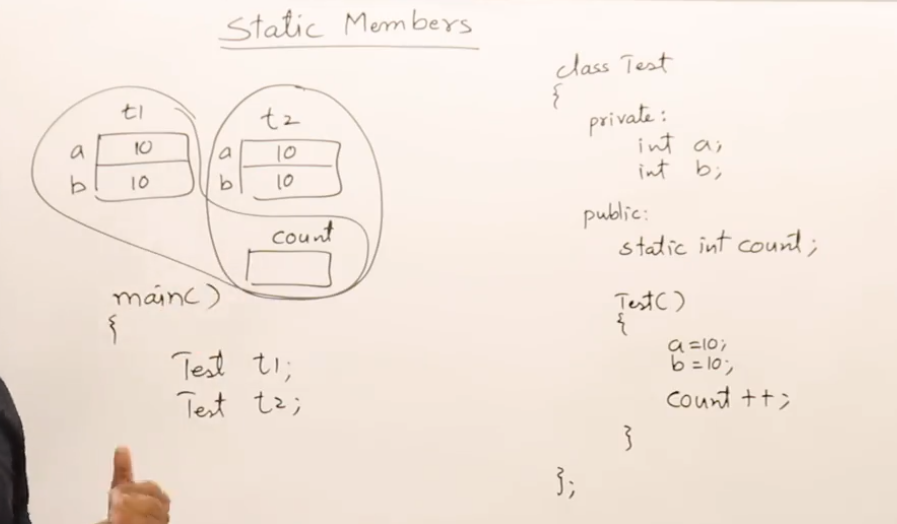 Static Members
t1
a 10
b 10
t2
a 10
b 10
count
main()
{
Test t1;
Test t2;
class Test
{
private:
int a;
int b;
public:
static int count;
Test()
{
a=10;
b=10;
count ++;
}
};